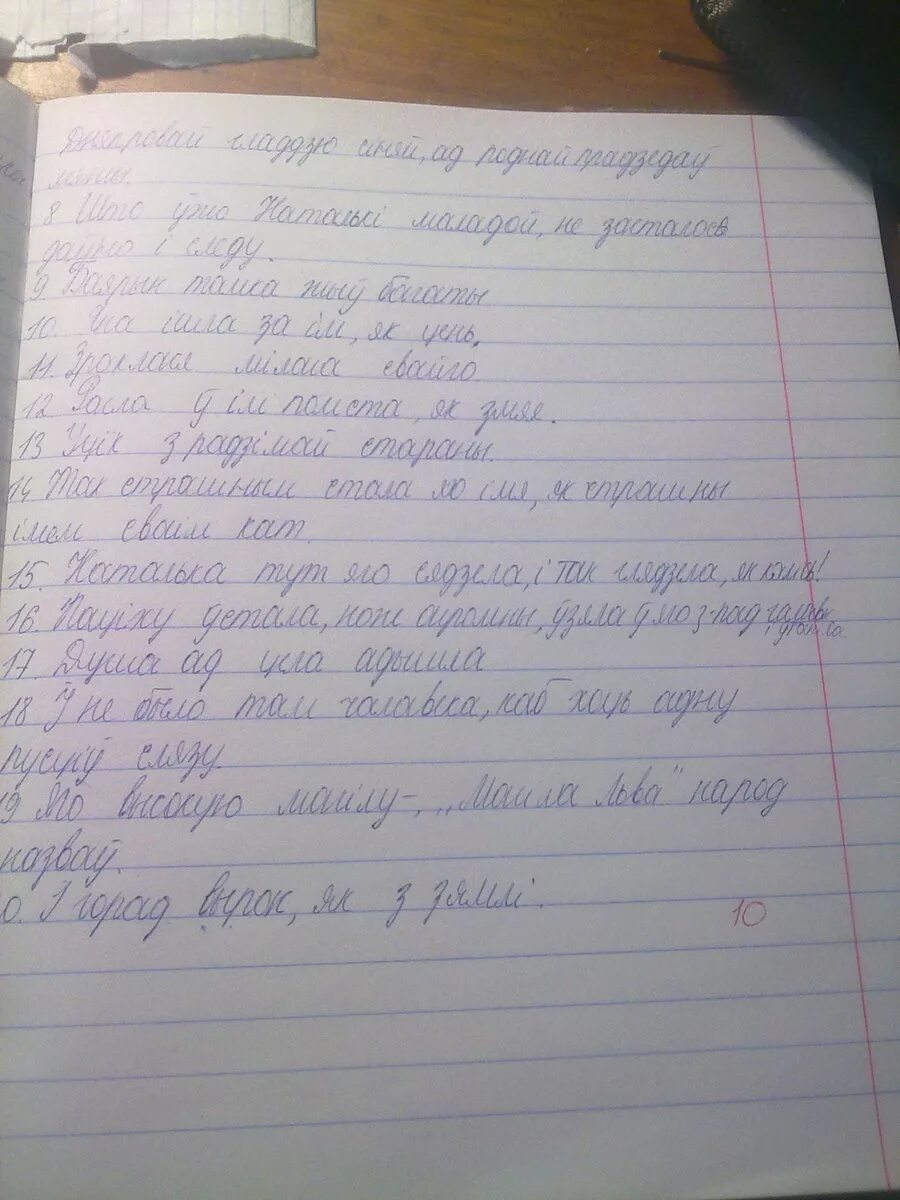 Дняпровай гладдзю сіняй, ад роднай прадзедаў
мяжы.
8 Што ўжо Наталькі маладой, не засталось
даўно і следу.
9. Баярын тамка жыў багаты
10. Яна ішла за ім, як цень.
11. Зраклася мілага свайго.
12 Расла ў ім помста, як змяя.
13 Уцёк з радзімай стараны.
14 Так страшным стала яго імя, як страшны
імем сваім кат.
15. Наталька тут яго сядзела, і так глядзела, як кахаць!
16. Паціху ўстала, нож агромны, ўзяла ў яго з-пад
17 Душа ад цела адышла
18 Ў не было там чалавека, каб хоць адну
пусціў слязу.
19 Яго высокую магілу -, „Магіла Льва" народ
назваў.
0. І горад вырас, як з зямлі.
10